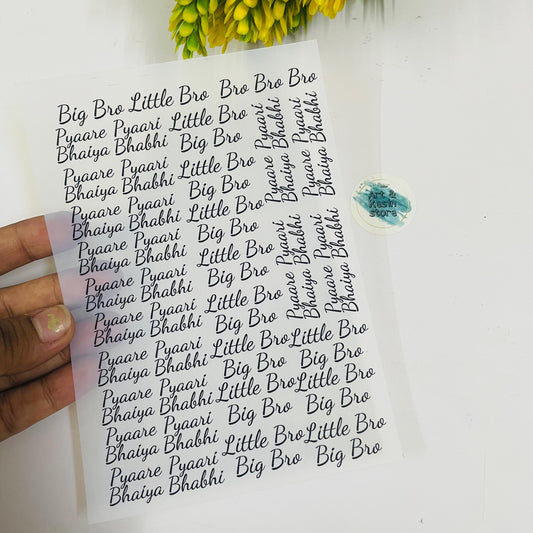 Big Bro Little Bro Bro Bro Bro
Pyaare Pyaari Little Bro
Bhaiya Bhabhi Big Bro
Pyaare Pyaari Little Bro
Bhaiya Bhabhi Big Bro
Pyaare Pyaari Little Bro
Bhaiya Bhabhi Big Bro
Pyaare Pyaari Little Bro
Bhaiya Bhabhi Big Bro
Pyaare Pyaari Little Bro
Bhaiya Bhabhi Big Bro
Pyaare Pyaari
Bhaiya Bhabhi
Pyaare Pyaari
Bhaiya Bhabhi
Pyaare Pyaari
Bhaiya Bhabhi
Pyaare Pyaari
Bhaiya Bhabhi
Pyaare Pyaari
Bhaiya Bhabhi Little Bro Little Bro
Pyaare Pyaari Big Bro Big Bro
Bhaiya Bhabhi Little Bro Little Bro
Pyaare Pyaari Big Bro Big Bro
Bhaiya Bhabhi Little Bro Little Bro
Pyaare Pyaari Big Bro Big Bro
Bhaiya Bhabhi
Pyaare Pyaari
Bhaiya Bhabhi
Art &
Resin
store